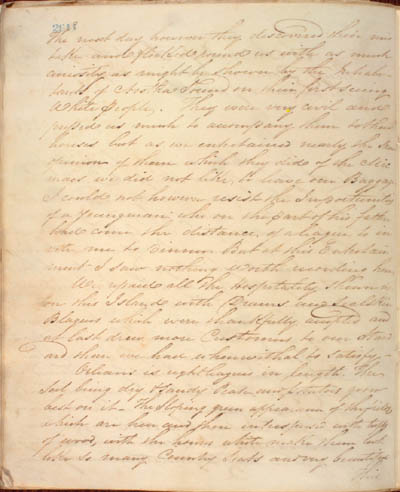 The next day however they discovered their mis
take and flocked round us with as much
curiosity as might be shown by the Inhabi
tants of
on their first seeing
White People. They were very civil and
pressed us much to accompany them to their
houses but as we entertained nearly the same
opinion of them which they did of the Mic
macs we did not like to leave our Baggage
I could not however resist the Importunities
of a Young man who on the part of his father
had come the distance of a league to in
vite me to dinner. But at this Entertain
ment I saw nothing worth recording here
We repaid all the Hospitality shown us
on this Island with
which were thankfully accepted and
at last drew more Customers to our
and than we had wherewithal to satisfy
Orleans is eight leagues in length. The
Soil being dry & sandy Pease and potatoes grow
best on it. The sloping green appearance of the fields
which are here and there interspersed with tufts
of wood, with the houses white make them look
like so many Country Seats and very beautiful